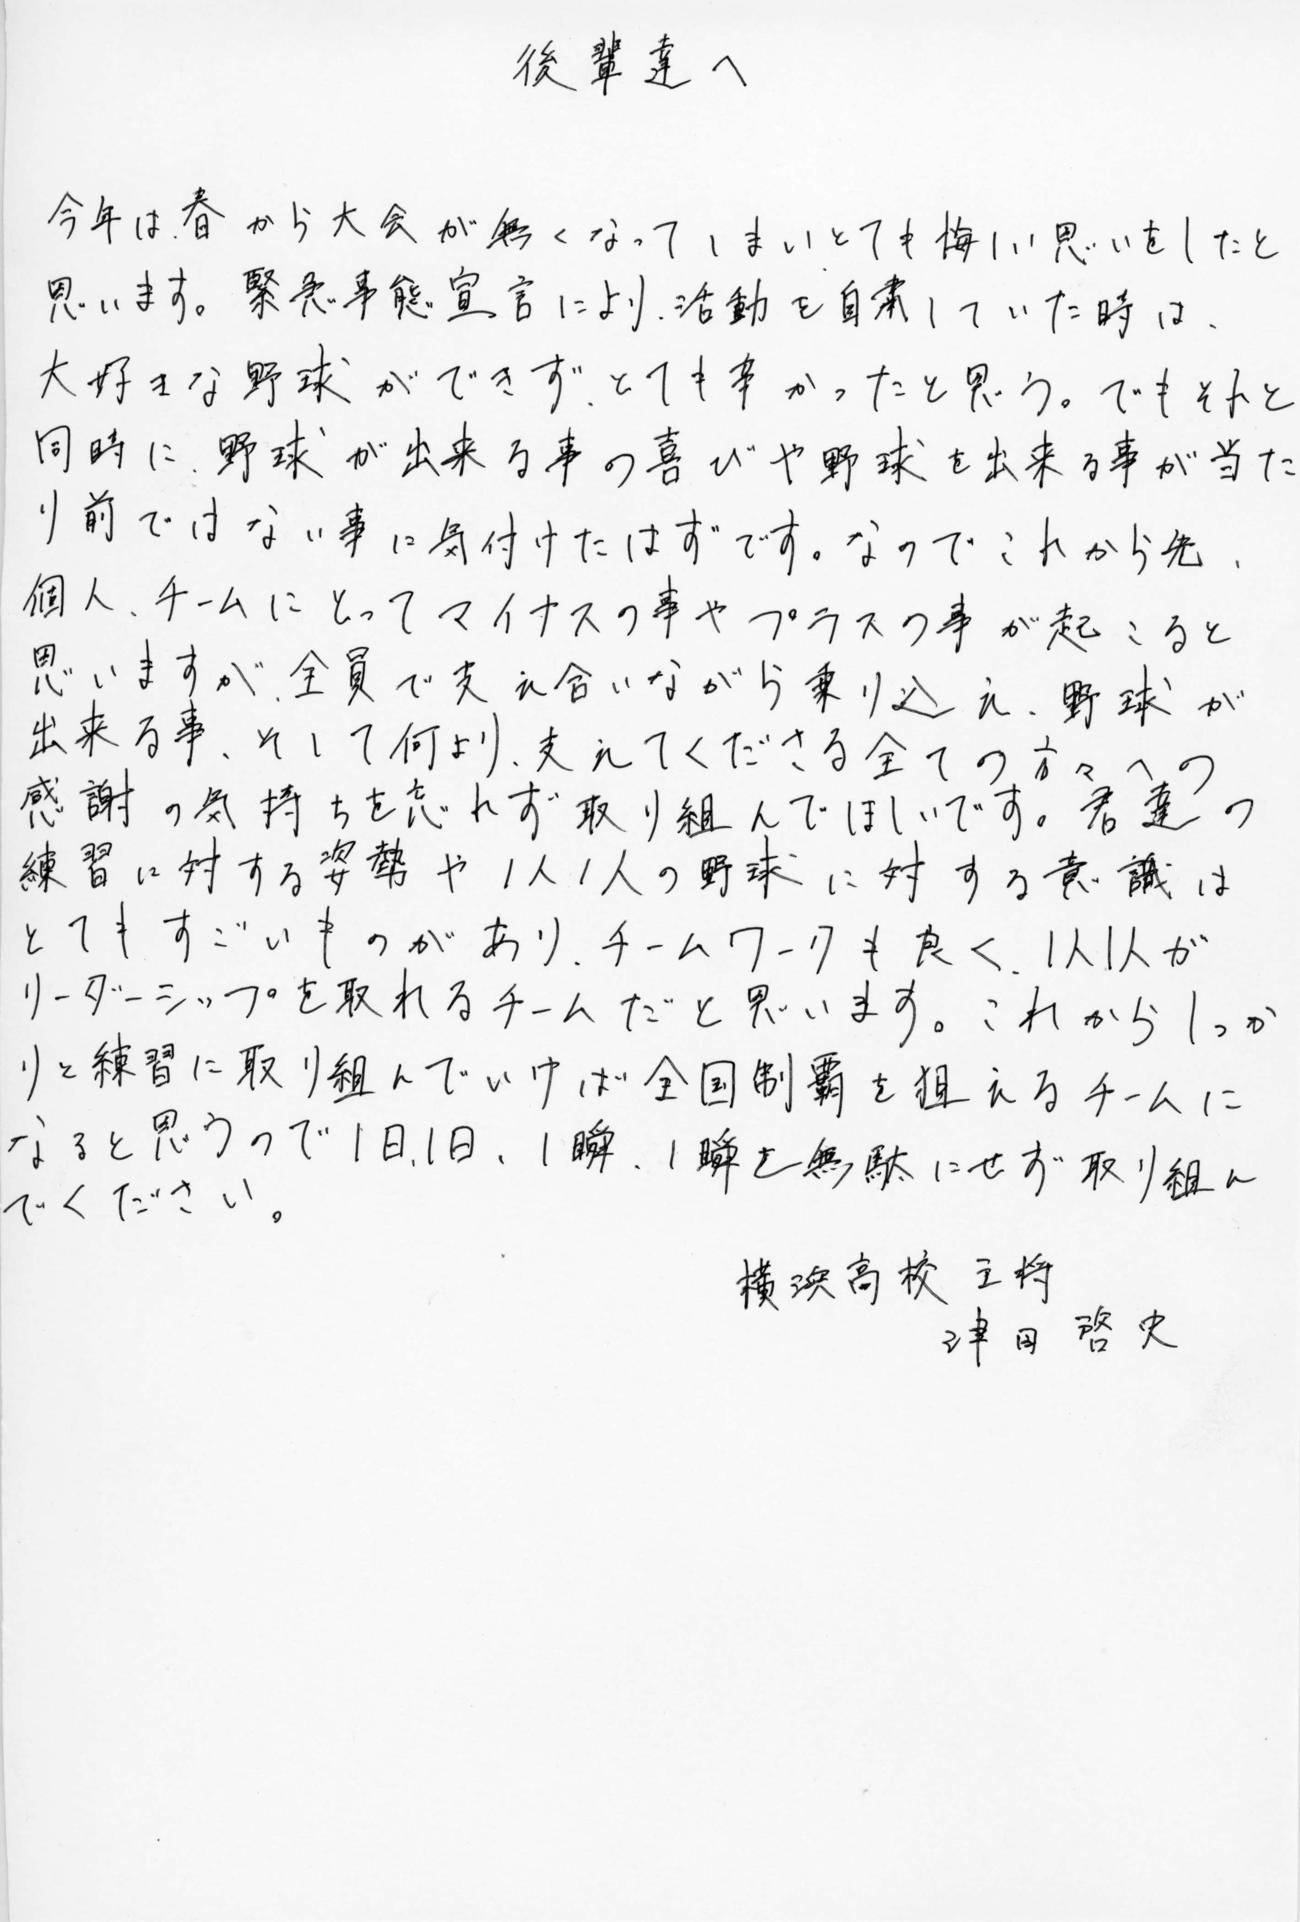 後輩達へ
今年は、春から大会が無くなってしまいとても悔しい思いをしたと
思います。緊急事態宣言により、活動を自粛していた時は、
大好きな野球ができず、とても辛かったと思う。でもそれと
同時に、野球が出来る事の喜びや野球を出来る事が当た
り前ではない事に気付けたはずです。なのでこれから先、
個人、チームにとってマイナスの事やプラスの事が起こると
思いますが、全員で支え合いながら乗り込え、野球が
出来る事、そして何より、支えてくださる全ての方々への
感謝の気持ちを忘れず取り組んでほしいです。君達の
練習に対する姿勢や1人1人の野球に対する意識は
とてもすごいものがあり、チームワークも良く、1人1人が
リーダーシップを取れるチームだと思います。これからしっか
りと練習に取り組んでいけば全国制覇を狙えるチームに
なると思うので1日、1日、1瞬、1瞬を無駄にせず取り組ん
でください。
横浜高校 主将
津田啓史